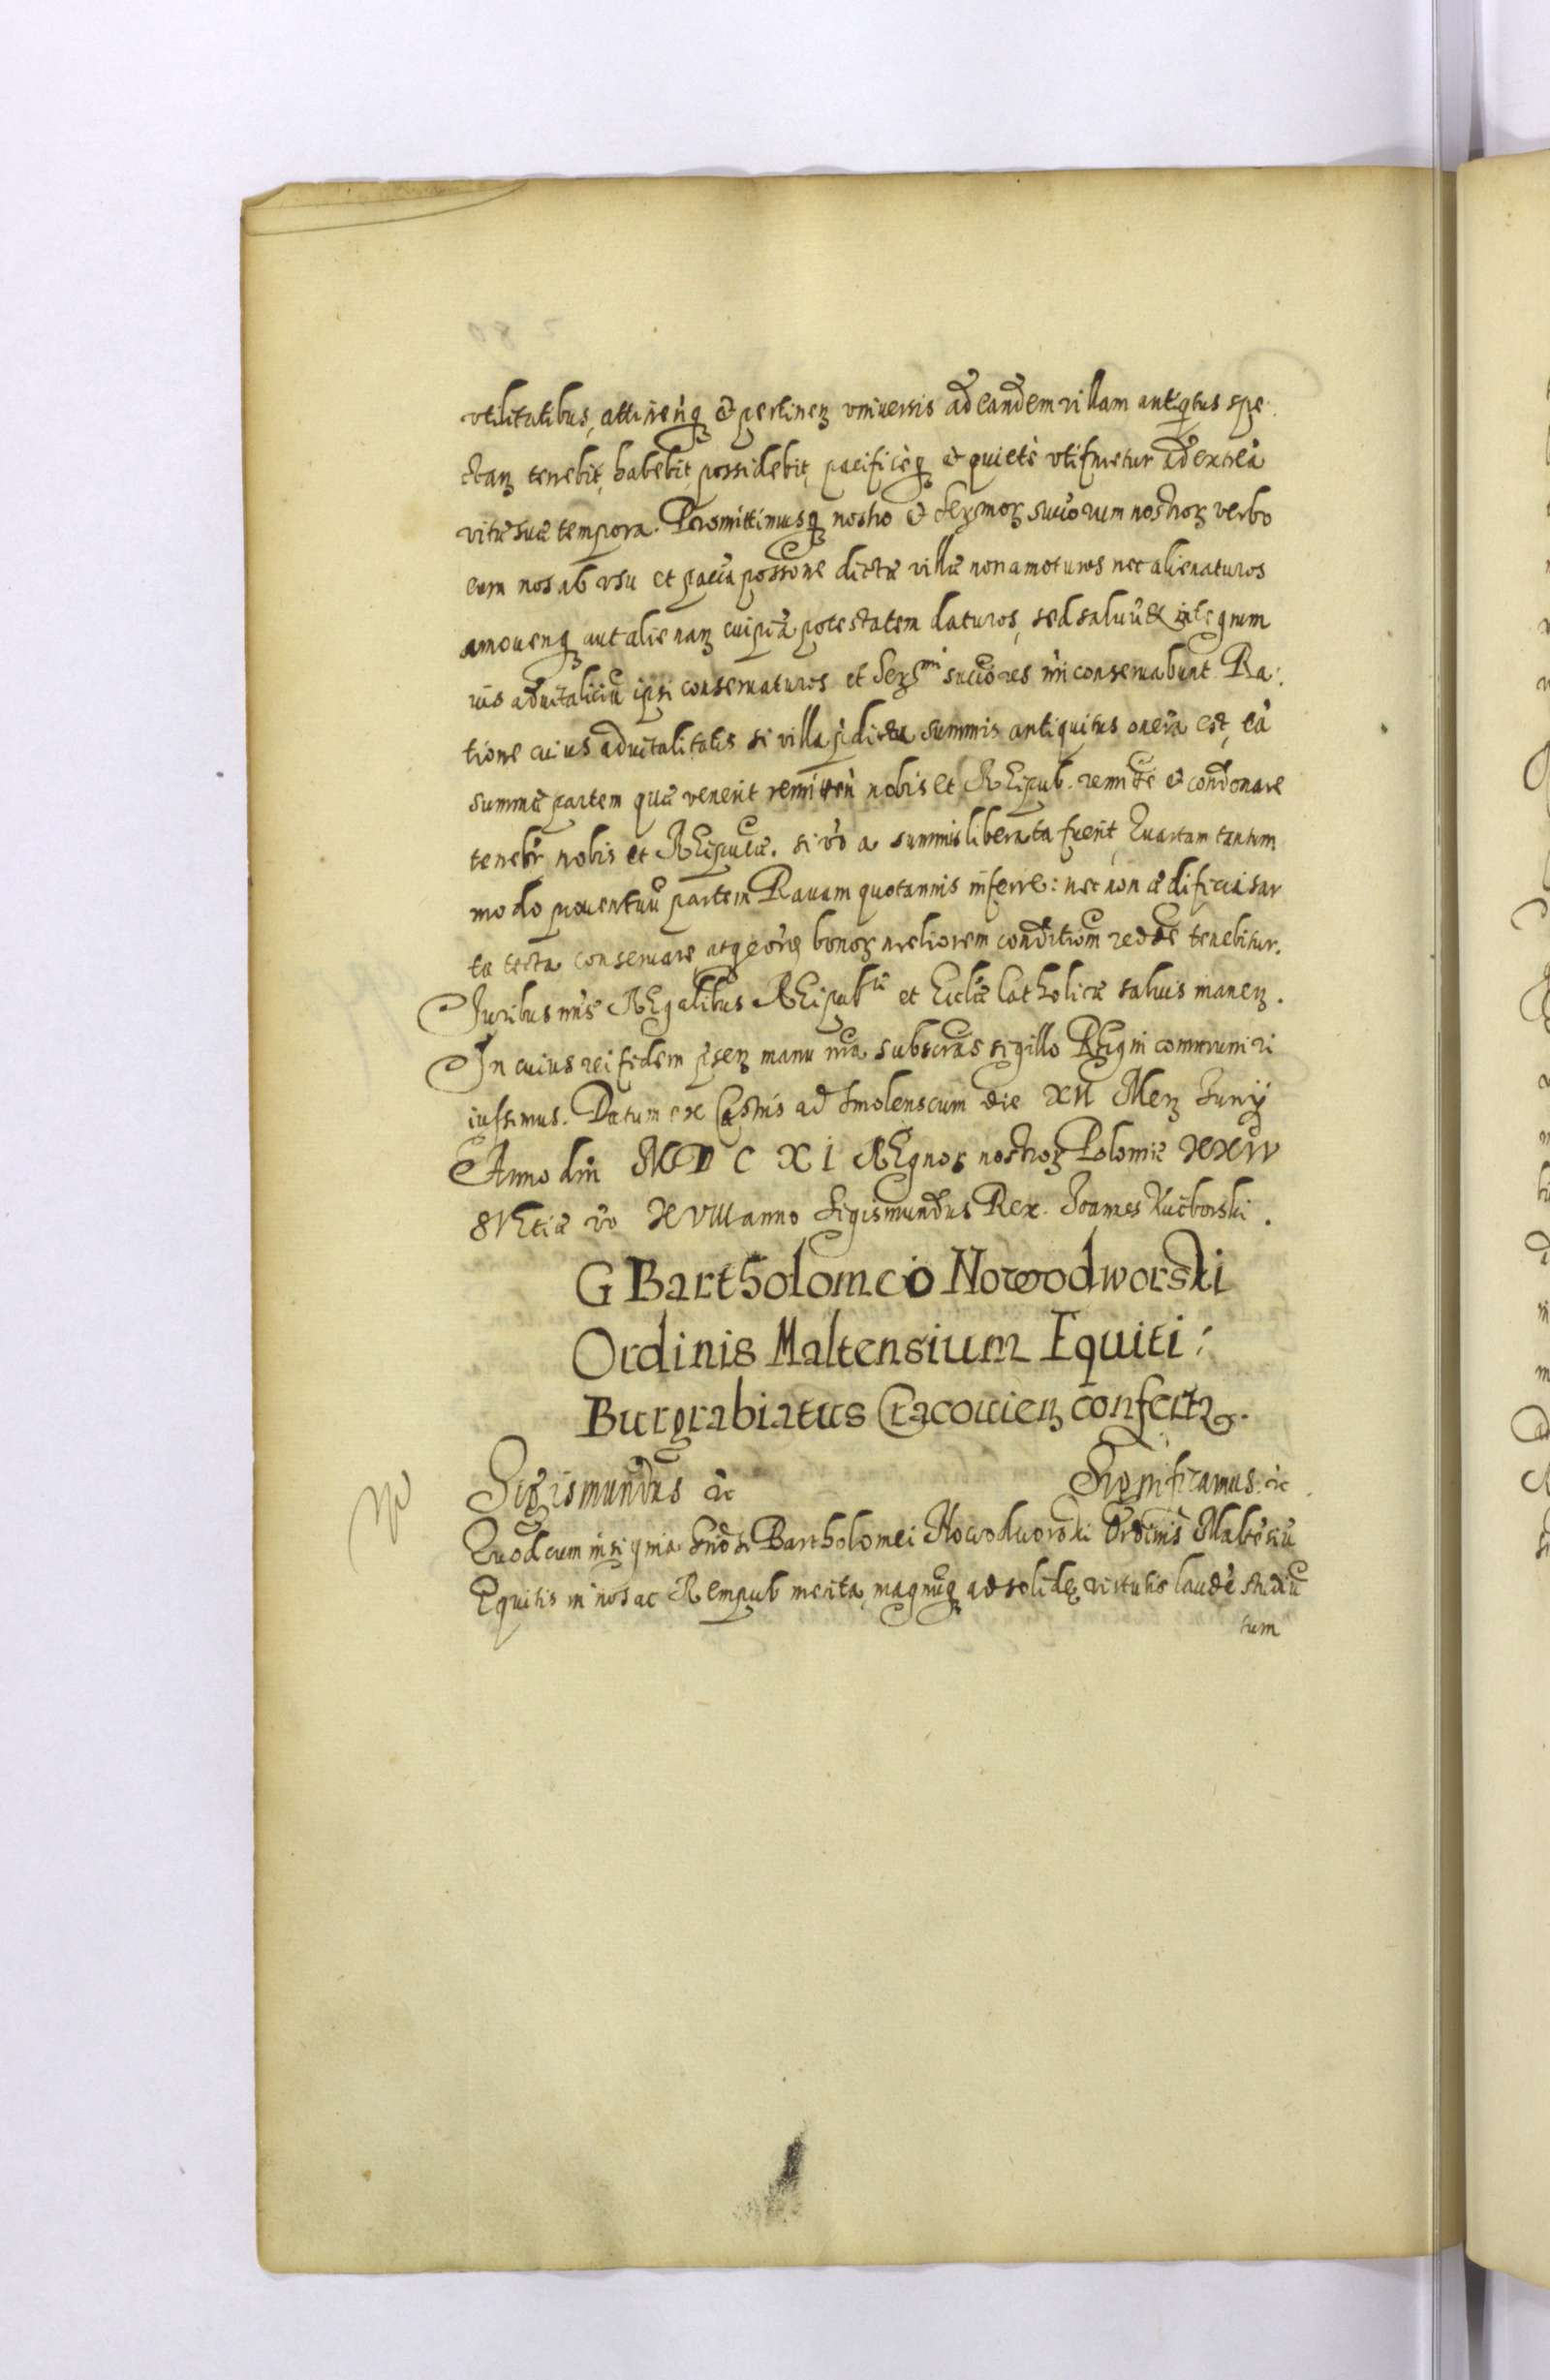 vtilitatibus, attineńq₃ & pertineɳ vniuersis ad eandem villam antiqtus spe
ctaɳ tenebit, habebit, possidebit, pacificeq₃ & quietè vtifruetur ad extrēa
vitæ suæ tempora. Promittimusq₃ nostro & Serᵐoꝝ succorum nostroꝝ verbo
eum nos ab vsu et paca possone dictæ villæ non amoturos nec alienaturos
amouenq₃ aut alienaɳ cuipiā potestatem daturos, sed saluū & integrum
ius aduitaliciū ipsi conseruaturos et Serᵐⁱ succores nri conseruabunt. Ra:
tione cuius aduitalitatis si villa pdicta summis antiquitus onera est, eā
summæ partem quæ venerit remitteń nobis et REipub. remitte & condonare
tenebr nobis et REipucæ. si vo a summis liberata fuerit, Quartam tantum
modo prouentuū partem Rauam quotannis inferre: nec non ædificia sar
ta tecta conseruare, atqȝ eorꝫ bonoꝝ meliorem conditiom redde tenebitur.
Iuribus nris REgalibus REipubᶜæ et Eccliæ Catholicæ saluis maneɳ.
In cuius rei fidem pseɳ manu nra subscras sigillo REgni communiri
iussimus. Datum ex Castris ad Smolenscum die XII Meɳ Iunÿ
Anno dni MDCXI REgnoꝝ nostroꝝ Poloniæ XXIV
SVEtiæ vo XVIII anno Sigismundus Rex. Ioannes Kucborski.
G Bartholomeo Nowodworski
Ordinis Maltensium Equiti:
Burgrabiatus Cracouieɳ confertꝛ.
Sigismundus &c Significamus &c
Quod cum insignia Gnosi Bartholomei Nowodworski Ordinis Maltēsiū
Equitis in nos ac Rempub merita, magnuq₃ ad solidę virtutis laudē studiū
tum